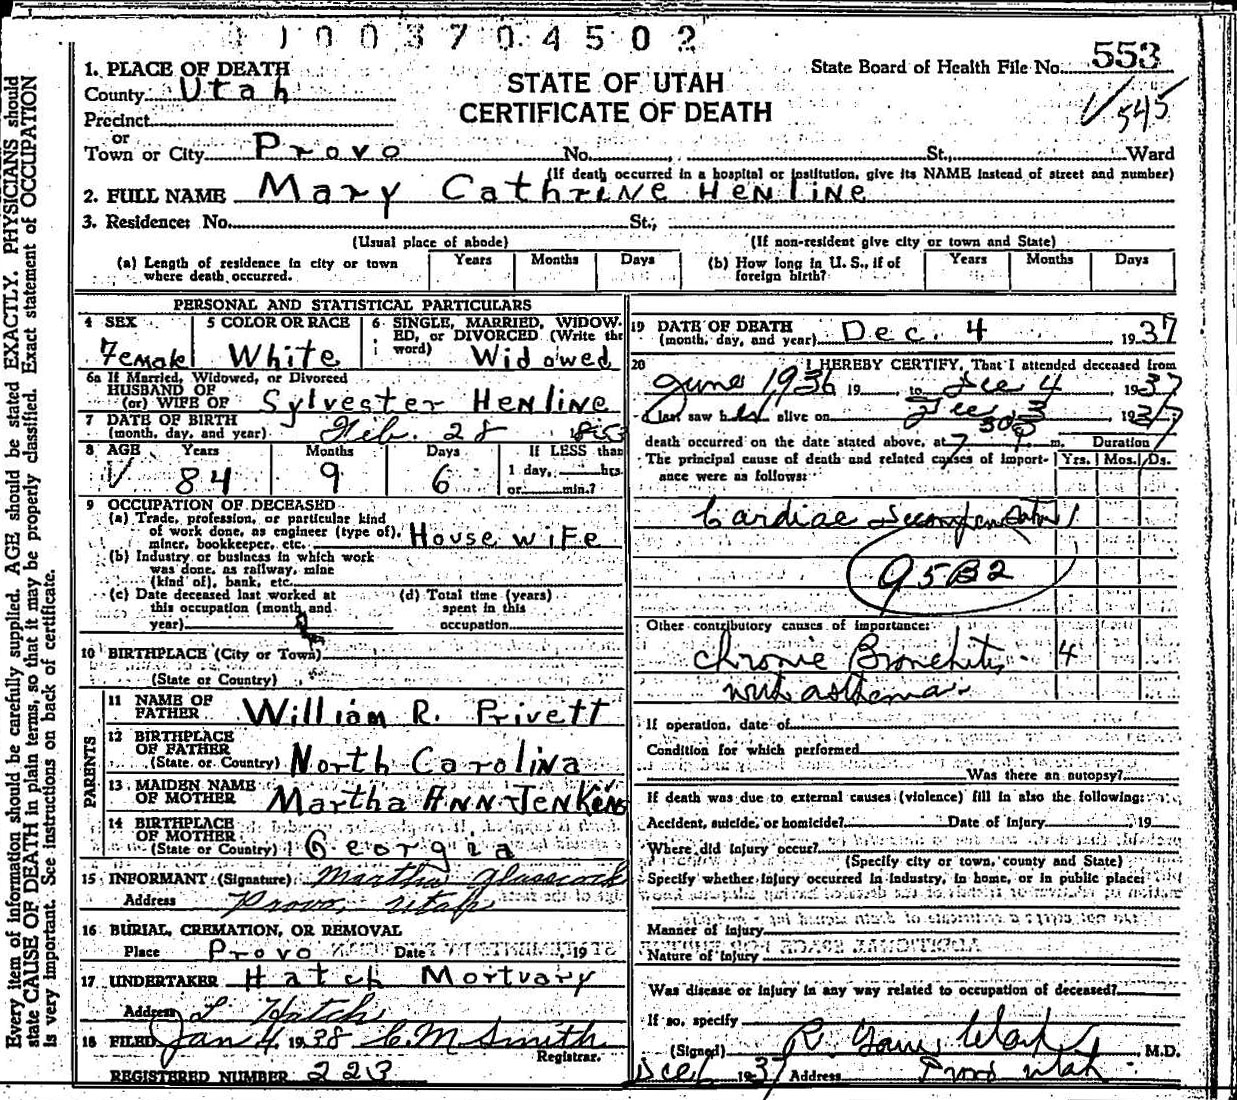 1 1 0 0 3 7 0 4 5 0 2
State Board of Health File No. 553
√ 545
STATE OF UTAH
CERTIFICATE OF DEATH
1. PLACE OF DEATH
County Utah
Precinct
or
Town or City Provo No. St., Ward
(If death occurred in a hospital or institution, give its NAME instead of street and number)
2. FULL NAME Mary Cathrine Henline
3. Residence: No. St.,
(Usual place of abode) (If non-resident give city or town and State)
(a) Length of residence in city or town where death occurred. Years Months Days
(b) How long in U. S., if of foreign birth? Years Months Days
PERSONAL AND STATISTICAL PARTICULARS
4 SEX Female
5 COLOR OR RACE White
6 SINGLE, MARRIED, WIDOWED, or DIVORCED (Write the word) Widowed
6a If Married, Widowed, or Divorced
HUSBAND OF
(or) WIFE OF Sylvester Henline
7 DATE OF BIRTH
(month, day, and year) Feb. 28 1853
8 AGE Years Months Days If LESS than
√ 84 9 6 1 day, hrs.
or min.?
9 OCCUPATION OF DECEASED
(a) Trade, profession, or particular kind
of work done, as engineer (type of),
miner, bookkeeper, etc. Housewife
(b) Industry or business in which work
was done, as railway, mine
(kind of), bank, etc.
(c) Date deceased last worked at
this occupation (month and
year)
(d) Total time (years)
spent in this
occupation
10 BIRTHPLACE (City or Town)
(State or Country)
PARENTS
11 NAME OF
FATHER William R. Privett
12 BIRTHPLACE
OF FATHER
(State or Country) North Carolina
13 MAIDEN NAME
OF MOTHER Martha Ann Jenkens
14 BIRTHPLACE
OF MOTHER
(State or Country) Georgia
15 INFORMANT (Signature) Martha Glasscock
Address Provo, Utah
16 BURIAL, CREMATION, OR REMOVAL
Place Provo Date 19
17 UNDERTAKER Hatch Mortuary
Address L Hatch
18 FILED Jan 4 1938 C.M Smith
Registrar.
REGISTERED NUMBER 223
19 DATE OF DEATH
(month, day, and year) Dec. 4 1937
20 I HEREBY CERTIFY, That I attended deceased from
June 1936 19 to Dec 4 1937
I last saw h er alive on Dec 3 1937
death occurred on the date stated above, at 7 30 P m. Duration
The principal cause of death and related causes of importance were as follows: Yrs. Mos. Ds.
Cardiac Decompensation
95B2
Other contributory causes of importance:
Chronic Bronchitis 4
with asthma
If operation, date of
Condition for which performed
Was there an autopsy?
If death was due to external causes (violence) fill in also the following:
Accident, suicide, or homicide? Date of injury 19
Where did injury occur?
(Specify city or town, county and State)
Specify whether injury occurred in industry, in home, or in public place:
Manner of injury
Nature of injury
Was disease or injury in any way related to occupation of deceased?
If so, specify
(Signed) R. M.D.
Dec 1937 Address Provo Utah
Every item of information should be carefully supplied. AGE should be stated EXACTLY. PHYSICIANS should
state CAUSE OF DEATH in plain terms, so that it may be properly classified. Exact statement of OCCUPATION
is very important. See instructions on back of certificate.